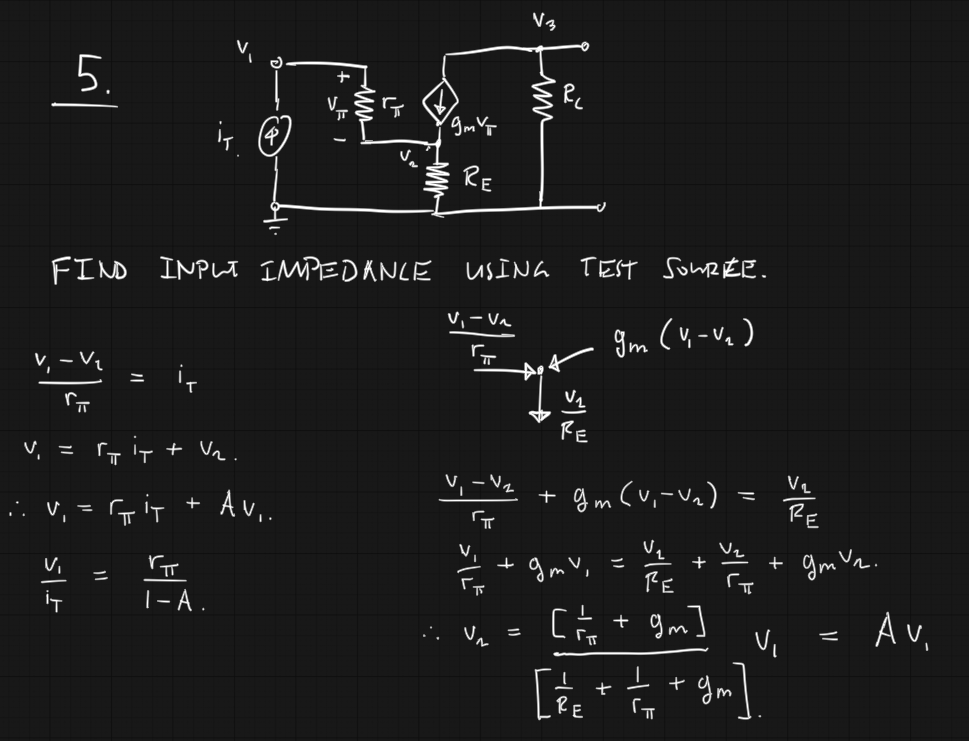 5.
V₁
+
Vπ
−
rπ
iT.
gmVπ
V₂
RE
V₃
RC
FIND INPUT IMPEDANCE USING TEST SOURCE.
(V₁ − V₂)/rπ = iT
V₁ = rπ iT + V₂.
∴ V₁ = rπ iT + A V₁.
V₁/iT = rπ/(1 − A).
(V₁ − V₂)/rπ
gm (V₁ − V₂)
V₂/RE
(V₁ − V₂)/rπ + gm (V₁ − V₂) = V₂/RE
V₁/rπ + gm V₁ = V₂/RE + V₂/rπ + gm V₂.
∴ V₂ = [1/rπ + gm]/[1/RE + 1/rπ + gm]. V₁ = A V₁